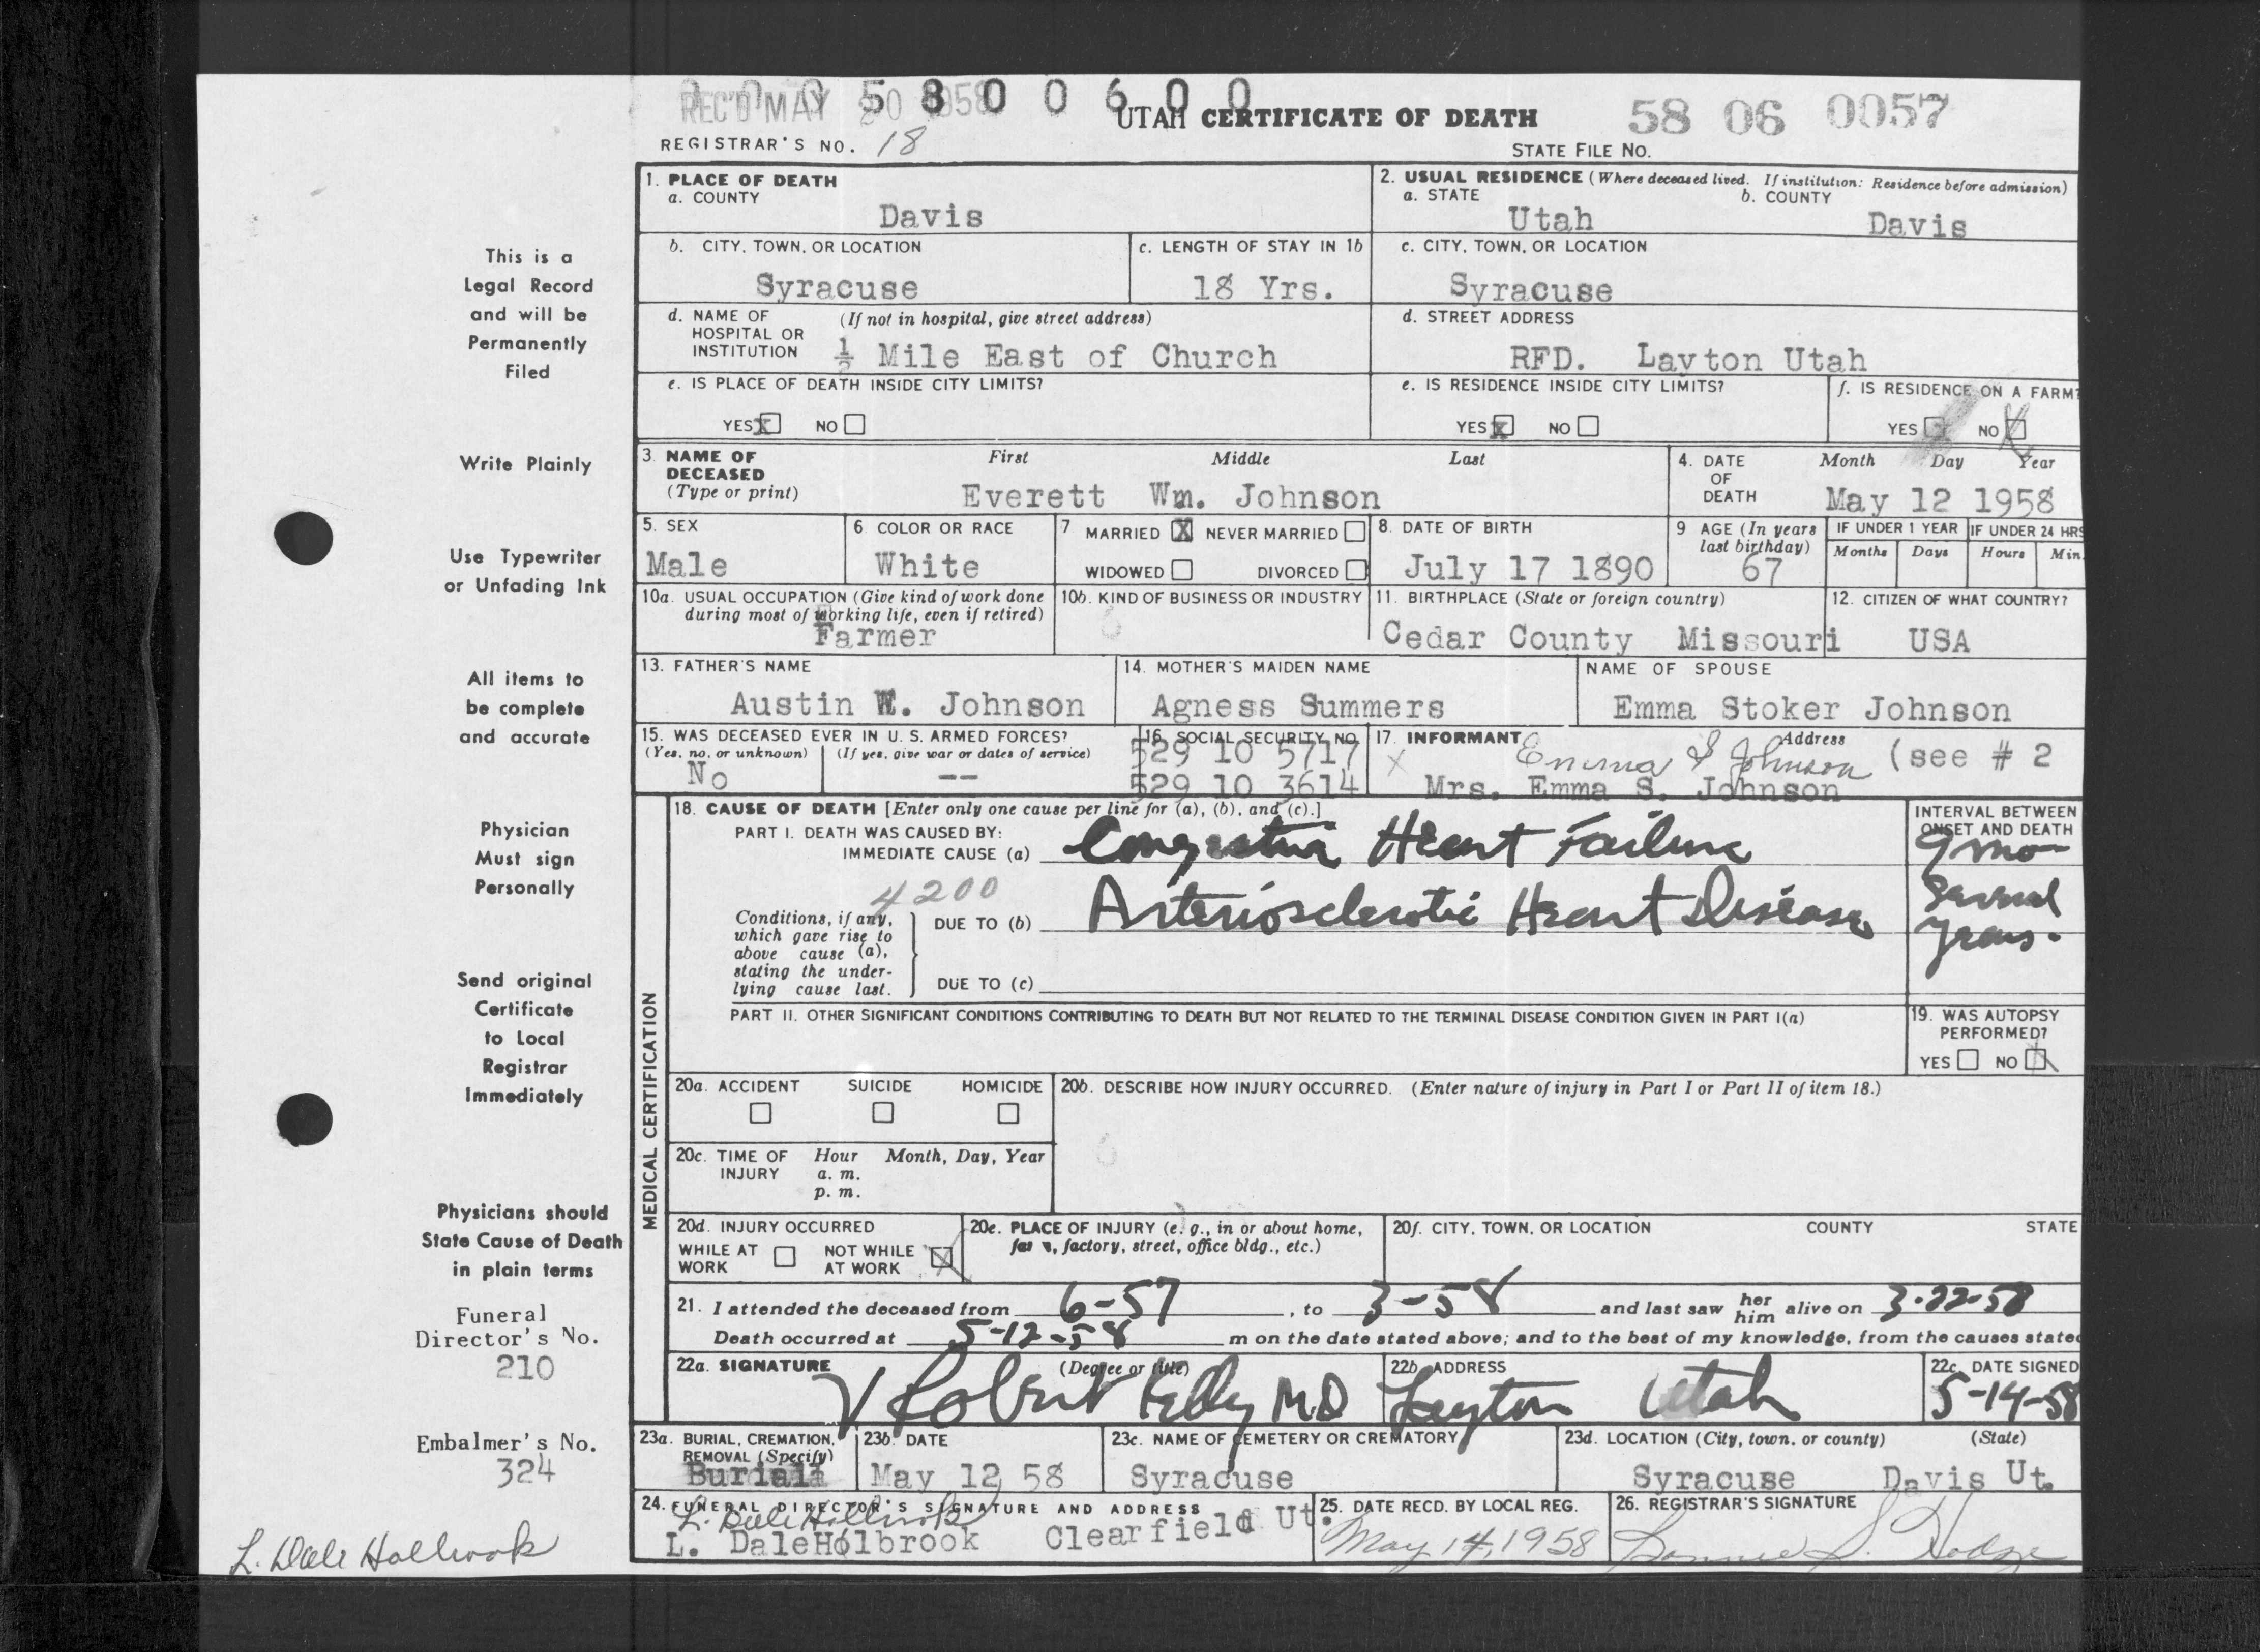 REC'D MAY 20 1958
5 8 0 0 6 0 0
UTAH CERTIFICATE OF DEATH
58 06 0057
REGISTRAR'S NO. 18
STATE FILE NO.
1. PLACE OF DEATH
a. COUNTY
Davis
2. USUAL RESIDENCE (Where deceased lived. If institution: Residence before admission)
a. STATE
Utah
b. COUNTY
Davis
b. CITY, TOWN, OR LOCATION
Syracuse
c. LENGTH OF STAY IN 1b
18 Yrs.
c. CITY, TOWN, OR LOCATION
Syracuse
d. NAME OF HOSPITAL OR INSTITUTION
(If not in hospital, give street address)
½ Mile East of Church
d. STREET ADDRESS
RFD. Layton Utah
e. IS PLACE OF DEATH INSIDE CITY LIMITS?
YES X NO
e. IS RESIDENCE INSIDE CITY LIMITS?
YES X NO
f. IS RESIDENCE ON A FARM?
YES NO X
3. NAME OF DECEASED (Type or print)
First Middle Last
Everett Wm. Johnson
4. DATE OF DEATH
Month Day Year
May 12 1958
5. SEX
Male
6. COLOR OR RACE
White
7. MARRIED X NEVER MARRIED
WIDOWED DIVORCED
8. DATE OF BIRTH
July 17 1890
9 AGE (In years last birthday)
67
IF UNDER 1 YEAR
Months Days
IF UNDER 24 HRS
Hours Min.
10a. USUAL OCCUPATION (Give kind of work done during most of working life, even if retired)
Farmer
10b. KIND OF BUSINESS OR INDUSTRY
11. BIRTHPLACE (State or foreign country)
Cedar County Missouri
12. CITIZEN OF WHAT COUNTRY?
USA
13. FATHER'S NAME
Austin W. Johnson
14. MOTHER'S MAIDEN NAME
Agness Summers
NAME OF SPOUSE
Emma Stoker Johnson
15. WAS DECEASED EVER IN U. S. ARMED FORCES?
(Yes, no, or unknown) (If yes, give war or dates of service)
No --
16. SOCIAL SECURITY NO.
529 10 5717
529 10 3614
17. INFORMANT Address
X Emma S Johnson (see # 2
Mrs. Emma S. Johnson
MEDICAL CERTIFICATION
18. CAUSE OF DEATH [Enter only one cause per line for (a), (b), and (c).]
PART I. DEATH WAS CAUSED BY:
IMMEDIATE CAUSE (a) Congestive Heart Failure
4200
Conditions, if any, which gave rise to above cause (a), stating the underlying cause last.
DUE TO (b) Arteriosclerotic Heart Disease
DUE TO (c)
INTERVAL BETWEEN ONSET AND DEATH
9 mo
Several years.
PART II. OTHER SIGNIFICANT CONDITIONS CONTRIBUTING TO DEATH BUT NOT RELATED TO THE TERMINAL DISEASE CONDITION GIVEN IN PART I(a)
19. WAS AUTOPSY PERFORMED?
YES NO X
20a. ACCIDENT SUICIDE HOMICIDE
20b. DESCRIBE HOW INJURY OCCURRED. (Enter nature of injury in Part I or Part II of item 18.)
20c. TIME OF INJURY
Hour a. m. p. m.
Month, Day, Year
20d. INJURY OCCURRED
WHILE AT WORK NOT WHILE AT WORK X
20e. PLACE OF INJURY (e. g., in or about home, factory, street, office bldg., etc.)
20f. CITY, TOWN, OR LOCATION COUNTY STATE
21. I attended the deceased from 6-57, to 3-58 and last saw her him alive on 3-22-58
Death occurred at 5-12-58 m on the date stated above; and to the best of my knowledge, from the causes stated
22a. SIGNATURE (Degree or title)
Robert Kelly M.D
22b. ADDRESS
Layton Utah
22c. DATE SIGNED
5-14-58
23a. BURIAL, CREMATION, REMOVAL (Specify)
Burial
23b. DATE
May 12 58
23c. NAME OF CEMETERY OR CREMATORY
Syracuse
23d. LOCATION (City, town, or county) (State)
Syracuse Davis Ut.
24. FUNERAL DIRECTOR'S SIGNATURE AND ADDRESS
L. Dale Holbrook
L. DaleHolbrook Clearfield Ut.
25. DATE RECD. BY LOCAL REG.
May 14, 1958
26. REGISTRAR'S SIGNATURE
S. Hodge
This is a
Legal Record
and will be
Permanently
Filed
Write Plainly
Use Typewriter
or Unfading Ink
All items to
be complete
and accurate
Physician
Must sign
Personally
Send original
Certificate
to Local
Registrar
Immediately
Physicians should
State Cause of Death
in plain terms
Funeral
Director's No.
210
Embalmer's No.
324
L. Dale Holbrook